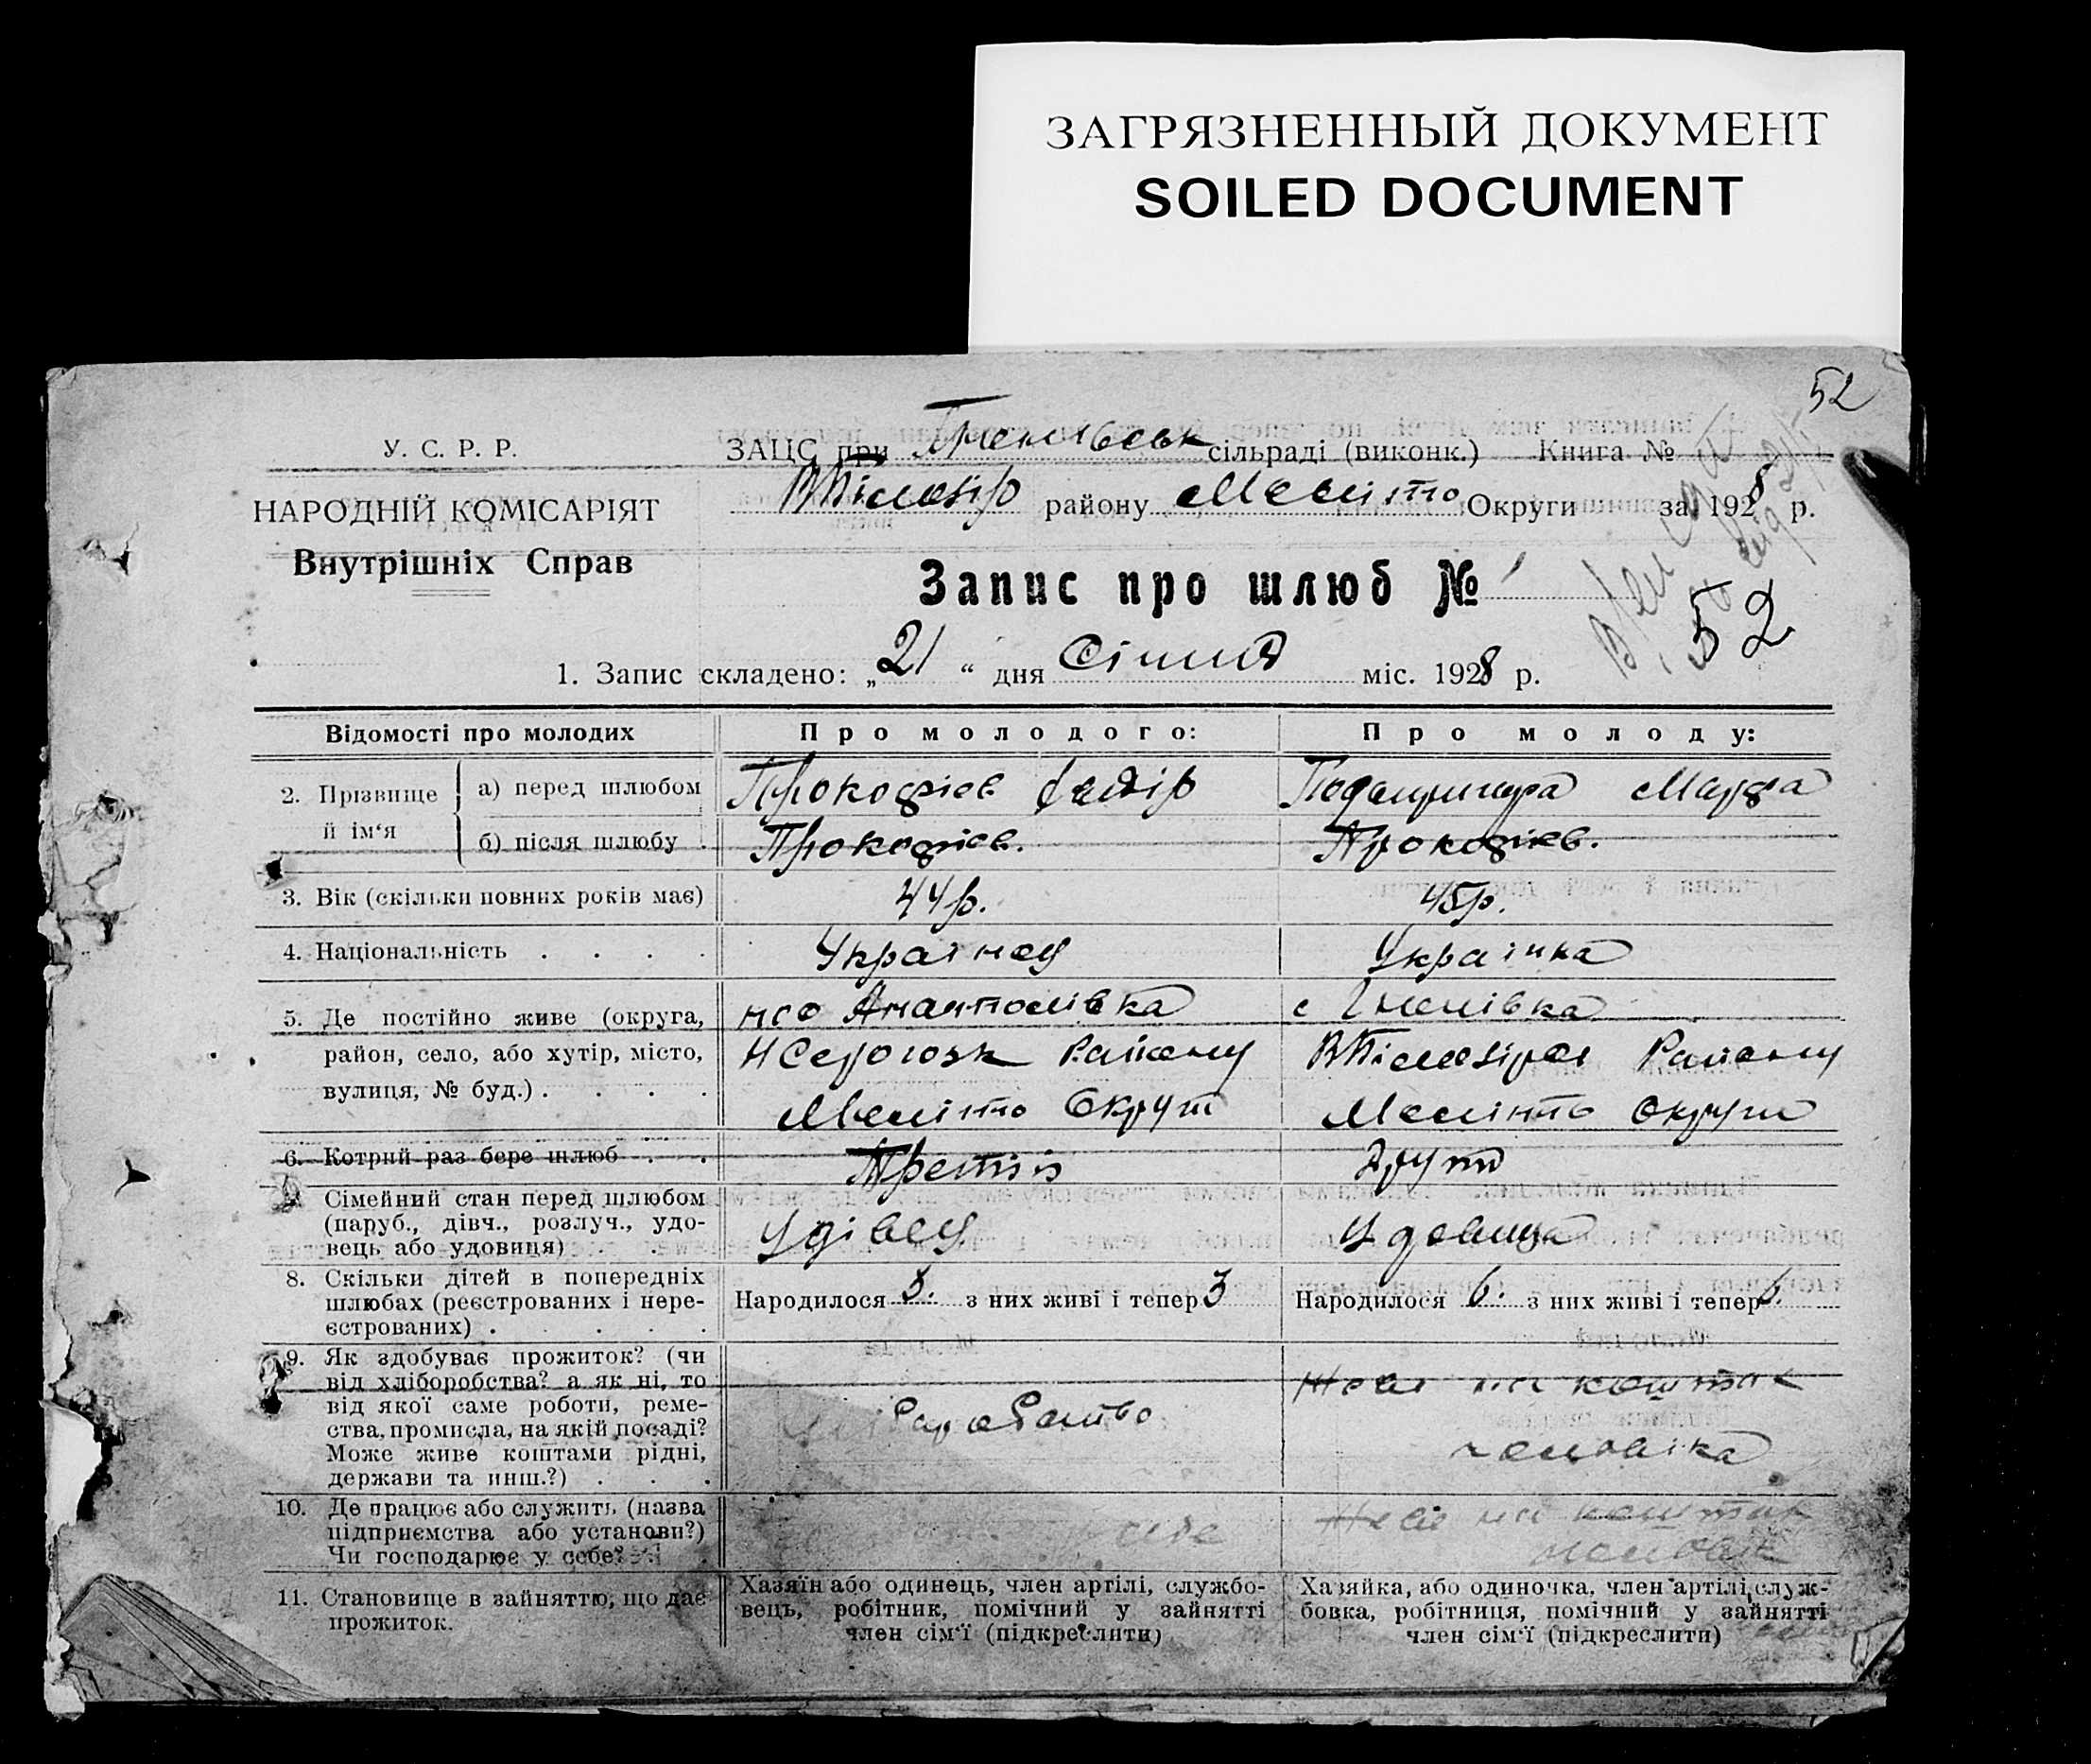 ЗАГРЯЗНЕННЫЙ ДОКУМЕНТ
SOILED DOCUMENT
52
У. С. Р. Р.
НАРОДНІЙ КОМІСАРІЯТ
Внутрішніх Справ
ЗАЦС при сільраді (виконк.) Книга №
району Меліто Округи за 1928 р.
Запис про шлюб № 1
52
1. Запис складено: „21“ дня Січня міс. 1928 р.
Відомості про молодих
Про молодого:
Про молоду:
2. Прізвище й ім‘я
а) перед шлюбом
Прокофієв Федір
Марфа
б) після шлюбу .
Прокофієв.
Прокофієв.
3. Вік (скільки повних років має)
44 р.
45 р.
4. Національність . . . .
Українец
Українка
5. Де постійно живе (округа,
район, село, або хутір, місто,
вулиця, № буд.) . . . .
Анатолівка
НСерогозк Району
Меліто Округи
с
Району
Меліто Округи
6. Котрий раз бере шлюб . .
Третій
Други
7. Сімейний стан перед шлюбом
(паруб., дівч., розлуч., удо-
вець або удовиця) . .
Удівец
Удовица
8. Скільки дітей в попередніх
шлюбах (реєстрованих і нере-
єстрованих) . . . .
Народилося 3. з них живі і тепер 3
Народилося 6. з них живі і тепер 6.
9. Як здобуває прожиток? (чи
від хліборобства? а як ні, то
від якої саме роботи, реме-
ства, промисла, на якій посаді?
Може живе коштами рідні,
держави та инш.?) . . .
на кошти
чоловіка
10. Де працює або служить (назва
підприємства або установи?)
Чи господарює у себе?
на кошти
11. Становище в зайняттю, що дає
прожиток.
Хазяїн або одинець, член артілі, службо-
вець, робітник, помічний у зайнятті
член сім‘ї (підкреслити)
Хазяйка, або одиночка, член артілі, служ-
бовка, робітниця, помічний у зайнятті
член сім‘ї (підкреслити)